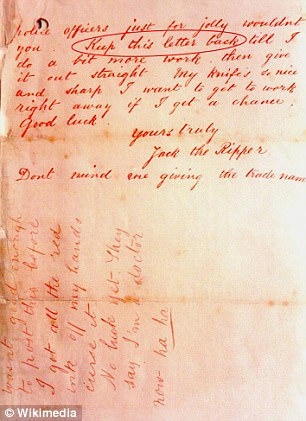 police officers just for jolly wouldnt
you. Keep this letter back till I
do a bit more work. then give
it out straight. My knife's so nice
and sharp I want to get to work
right away if I get a chance.
Good luck.
Yours truly
Jack the Ripper
Dont mind me giving the trade name
wasnt good enough
to post this before
I got all the red
ink off my hands
curse it.
No luck yet. They
say I'm a doctor
now ha ha
© Wikimedia